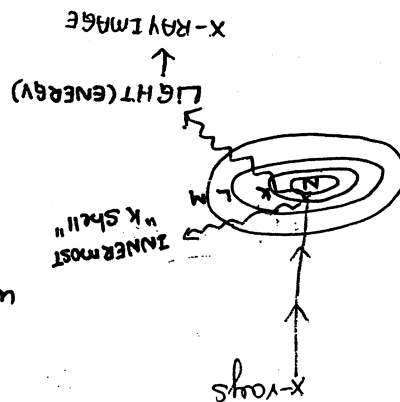 X-rays
INNERMOST
"K Shell"
N
K
L
M
LIGHT (ENERGY)
X-RAY IMAGE